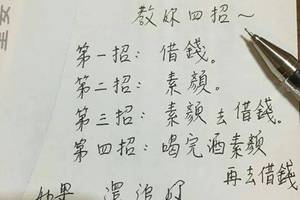 教妳四招～
第一招：借錢。
第二招：素顏。
第三招：素顏去借錢。
第四招：喝完酒素顏
再去借錢
如果 還追妳